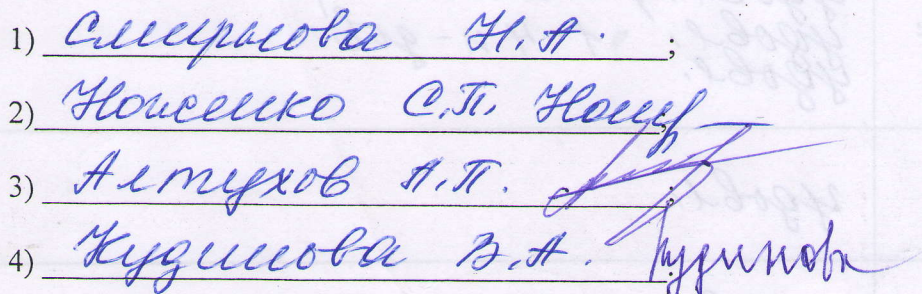 1) Смирнова Н.А. ;
2) Ноженко С.П.
3) Алтухов А.П. ;
4) Кудинова В.А. Кудинова